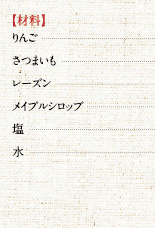 【材料】
りんご
さつまいも
レーズン
メイプルシロップ
塩
水